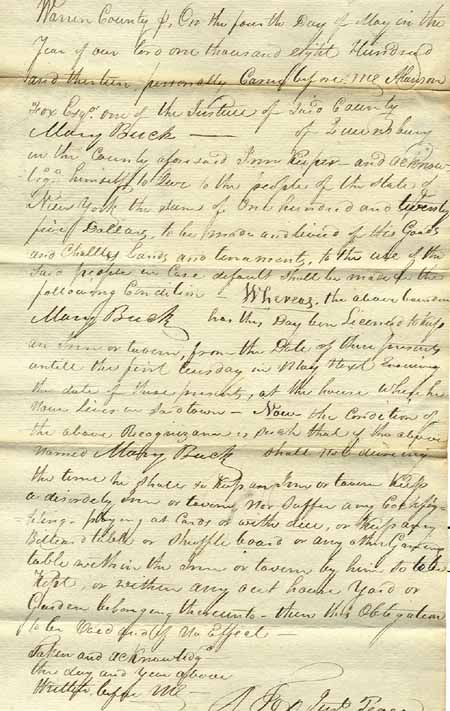 Warren County ss, On the fourth Day of May in the
Year of our lord one thousand eight Hundred
and thirteen personally Came before me
Fox Esqr. one of the Justice of Said County
Mary Buck — of Queensbury
in the County aforesaid Inn Keeper - and acknow
himself to Owe to the people of the State of
New York the sum of One hundred and twenty
five Dollars, to be made and levied of His Goods
and Chattles Lands and tenaments, to the use of the
Said people in Case default Shall be made in the
following Condition - Whereas, the above bounden
Mary Buck has this Day been Licensed to keep
an Inn or tavern, from the Date of these presents
untill the first tuesday in May Next Ensuing
the date of these presents, at the house Where he
Now Lives in Said town - Now the Condition of
the above Recognizance is Such that if the above
Named Mary Buck Shall not during
the time he Shall so Keep an Inn or tavern Keep
a disordely inn or tavern, Nor Suffer any Cock figh-
ting, playing at Cards or with dice, or Keep any
Billiard table or Shuffle board or any other Gaming
table within the Inn or tavern by him to be
Kept, or within any out house Yard or
Garden belonging thereunto - then this Obligation
to be Void and of No Effect -
Taken and acknowledgd
the day and year above
Written before Me -
A Fox Just Peace